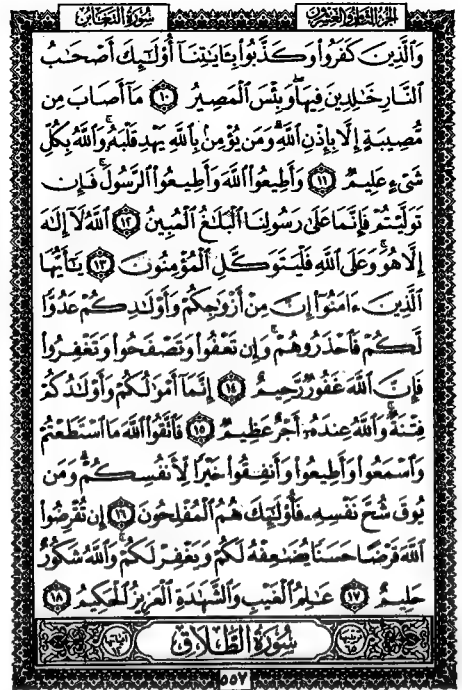 سُورَةُ التَّغَابُنِ الجُزءُ الثَّامِنُ وَالعِشْرُونَ
وَٱلَّذِينَ كَفَرُوا۟ وَكَذَّبُوا۟ بِـَٔايَٰتِنَآ أُو۟لَٰٓئِكَ أَصْحَٰبُ
ٱلنَّارِ خَٰلِدِينَ فِيهَا ۖ وَبِئْسَ ٱلْمَصِيرُ ١٠ مَآ أَصَابَ مِن
مُّصِيبَةٍ إِلَّا بِإِذْنِ ٱللَّهِ ۗ وَمَن يُؤْمِنۢ بِٱللَّهِ يَهْدِ قَلْبَهُۥ ۚ وَٱللَّهُ بِكُلِّ
شَىْءٍ عَلِيمٌ ١١ وَأَطِيعُوا۟ ٱللَّهَ وَأَطِيعُوا۟ ٱلرَّسُولَ ۚ فَإِن
تَوَلَّيْتُمْ فَإِنَّمَا عَلَىٰ رَسُولِنَا ٱلْبَلَٰغُ ٱلْمُبِينُ ١٢ ٱللَّهُ لَآ إِلَٰهَ
إِلَّا هُوَ ۚ وَعَلَى ٱللَّهِ فَلْيَتَوَكَّلِ ٱلْمُؤْمِنُونَ ١٣ يَٰٓأَيُّهَا
ٱلَّذِينَ ءَامَنُوٓا۟ إِنَّ مِنْ أَزْوَٰجِكُمْ وَأَوْلَٰدِكُمْ عَدُوًّا
لَّكُمْ فَٱحْذَرُوهُمْ ۚ وَإِن تَعْفُوا۟ وَتَصْفَحُوا۟ وَتَغْفِرُوا۟
فَإِنَّ ٱللَّهَ غَفُورٌ رَّحِيمٌ ١٤ إِنَّمَآ أَمْوَٰلُكُمْ وَأَوْلَٰدُكُمْ
فِتْنَةٌ ۚ وَٱللَّهُ عِندَهُۥٓ أَجْرٌ عَظِيمٌ ١٥ فَٱتَّقُوا۟ ٱللَّهَ مَا ٱسْتَطَعْتُمْ
وَٱسْمَعُوا۟ وَأَطِيعُوا۟ وَأَنفِقُوا۟ خَيْرًا لِّأَنفُسِكُمْ ۗ وَمَن
يُوقَ شُحَّ نَفْسِهِۦ فَأُو۟لَٰٓئِكَ هُمُ ٱلْمُفْلِحُونَ ١٦ إِن تُقْرِضُوا۟
ٱللَّهَ قَرْضًا حَسَنًا يُضَٰعِفْهُ لَكُمْ وَيَغْفِرْ لَكُمْ ۚ وَٱللَّهُ شَكُورٌ
حَلِيمٌ ١٧ عَٰلِمُ ٱلْغَيْبِ وَٱلشَّهَٰدَةِ ٱلْعَزِيزُ ٱلْحَكِيمُ ١٨
سُورَةُ الطَّلَاقِ
٥٥٧